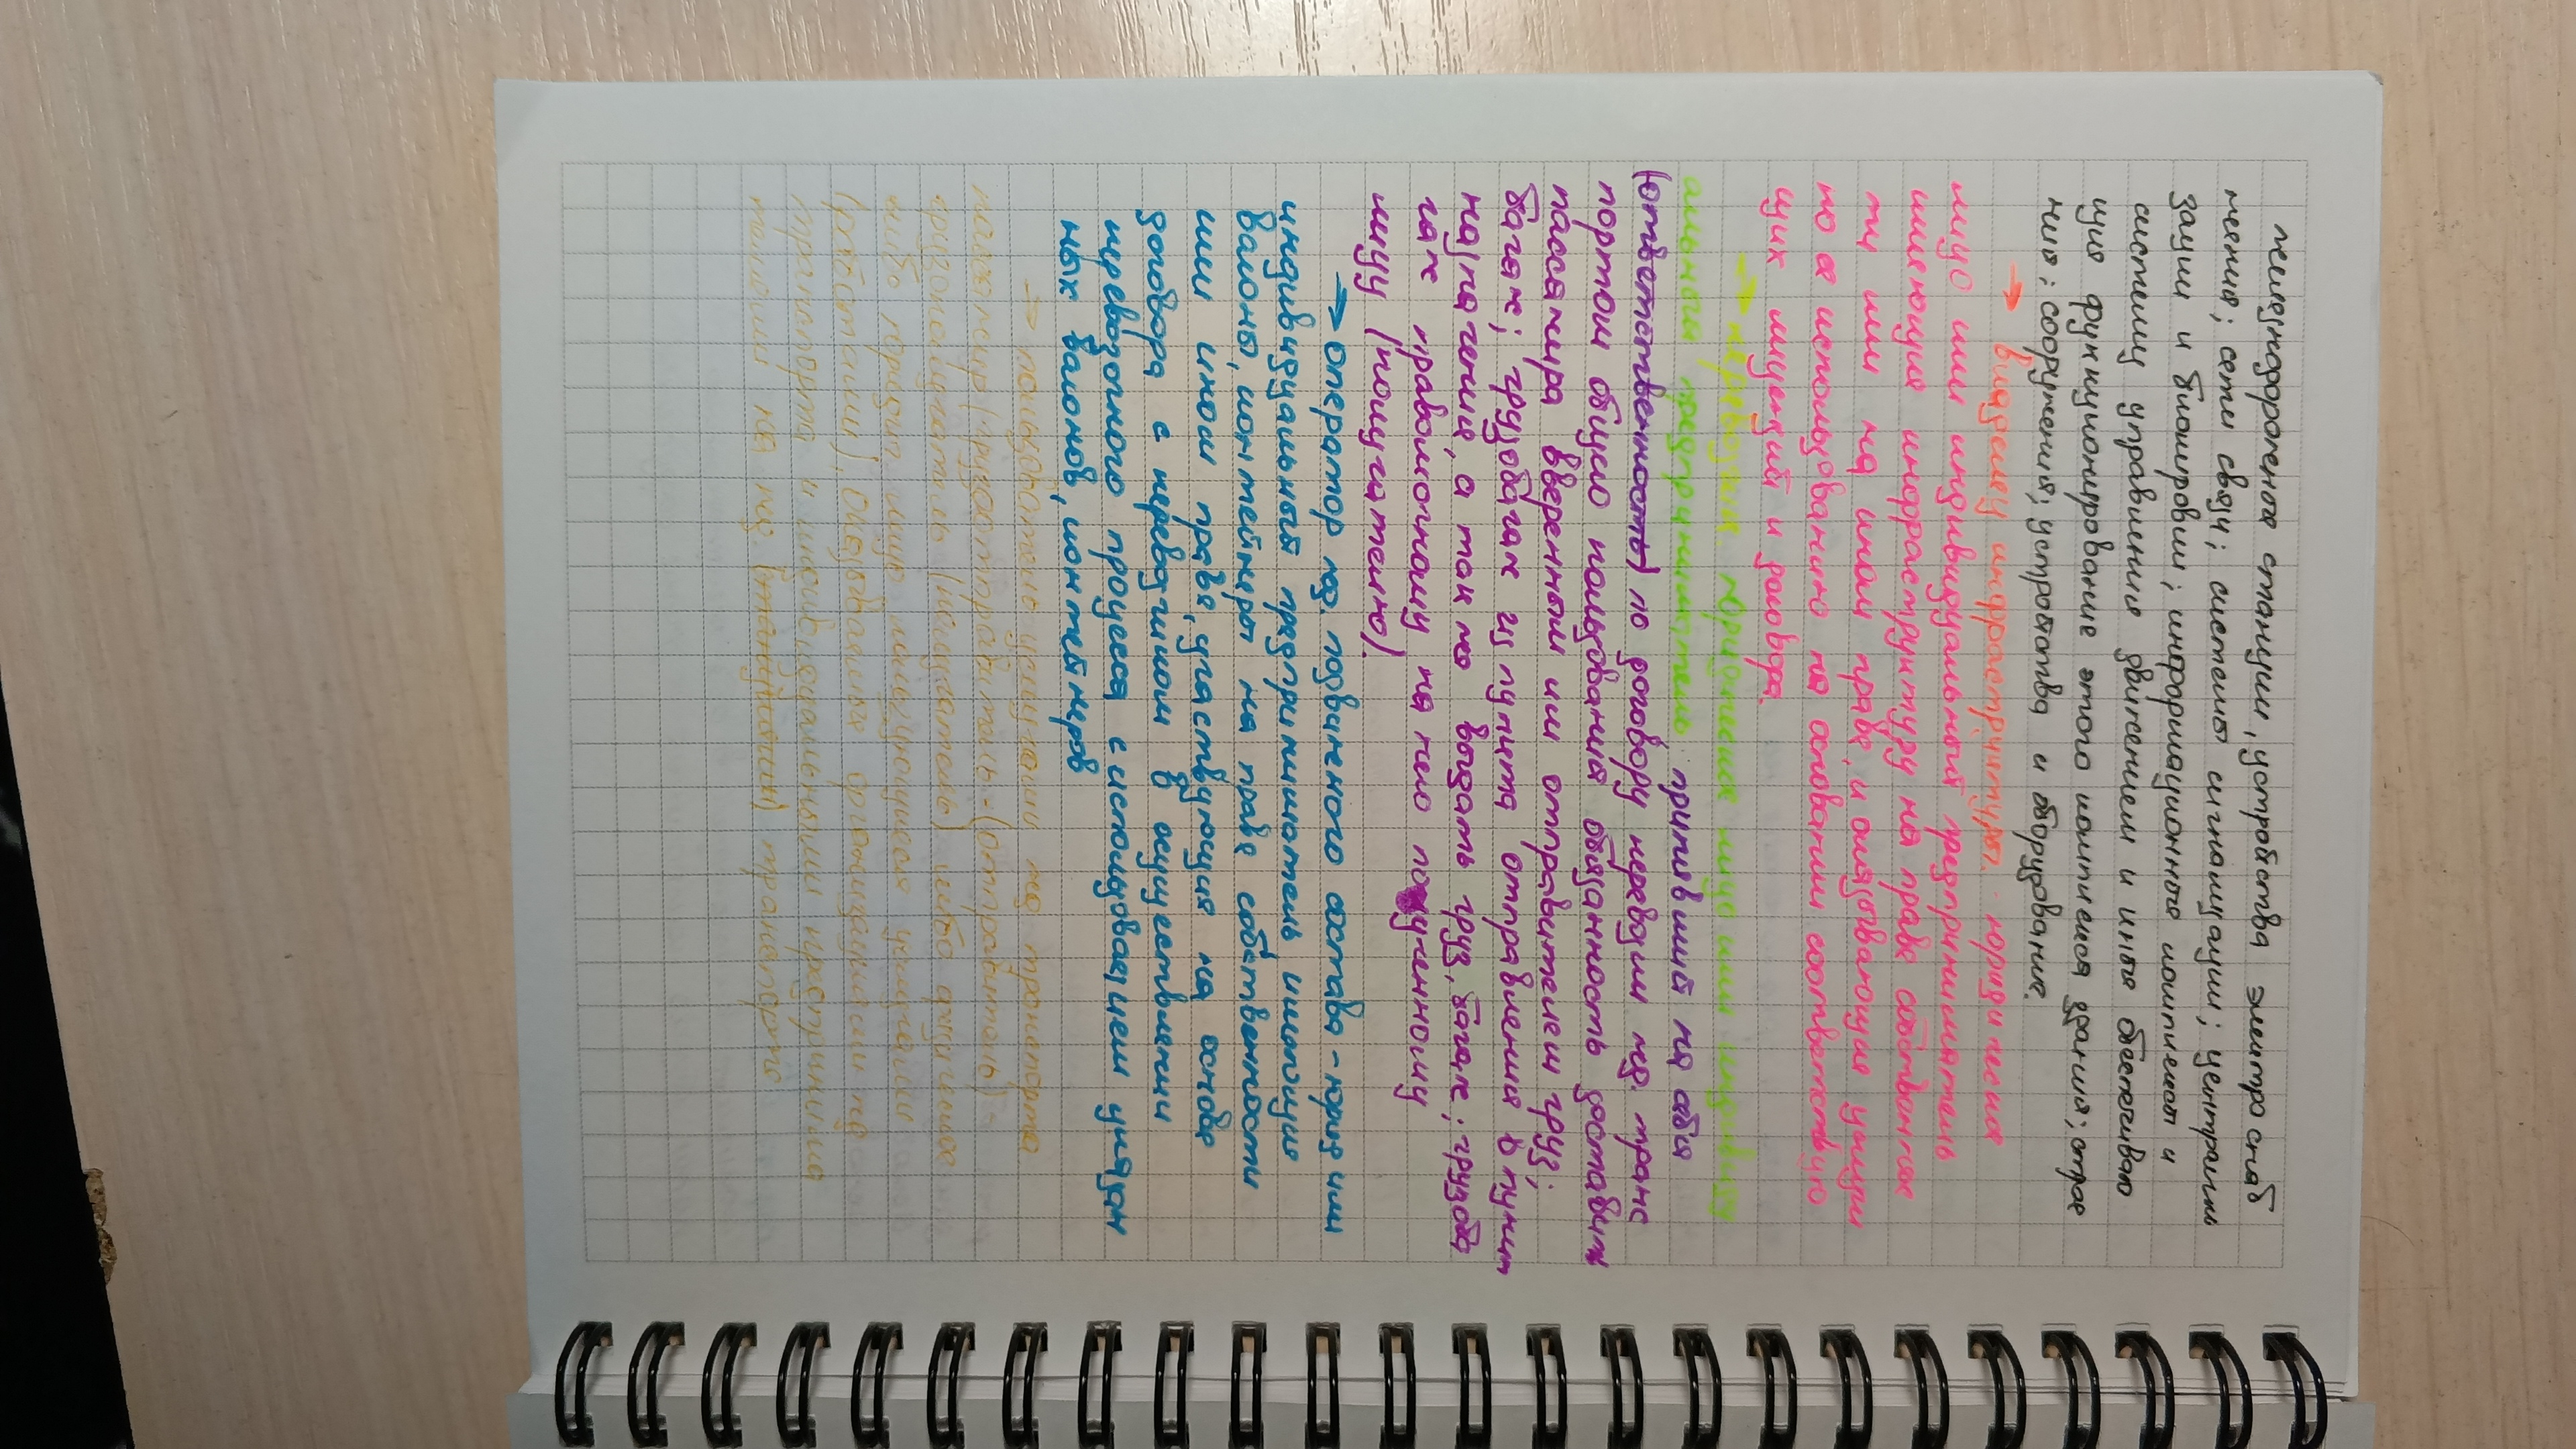 железнодорожная станции, устройства электроснаб
жения; сети связи; системы сигнализации; централи
зации и блокировки; информационные комплексы и
систему управления движением и иные обеспечиваю
щие функционирование этого комплекса здания; строе
ния; сооружения; устройства и оборудование.
→ Владелец инфраструктуры - юридическое
лицо или индивидуальный предприниматель
имеющие инфраструктуру на праве собственнос
ти или на ином праве, и оказывающие услуги
по её использованию на основании соответствую
щих лицензий и договора.
→ перевозчик - юридическое лицо или индивиду
альный предприниматель, принявший на себя
(ответственность) по договору перевозки жд. транс
портом общего пользования обязанность доставить
пассажира вверенный им отправителем груз;
багаж; грузобагаж из пункта отправления в пункт
назначения, а также выдать груз, багаж; грузоба
гаж правомочному на его получению
лицу (получателю).
→ Оператор жд. подвижного состава - юрид или
индивидуальный предприниматель, имеющие
вагоны, контейнеры на праве собственности
или ином праве, участвующие на основе
договора с перевозчиком в осуществлении
перевозочного процесса с использованием указан
ных вагонов, контейнеров
→ пользователь услугами жд транспорта
пассажир, грузоотправитель - (отправитель)
грузополучатель (получатель) либо другое
либо юридич. лицо пользующиеся услугами
(работами), оказываемых организациями жд
транспорта и индивидуальными предпринима
телями на жд (станциями) транспорте